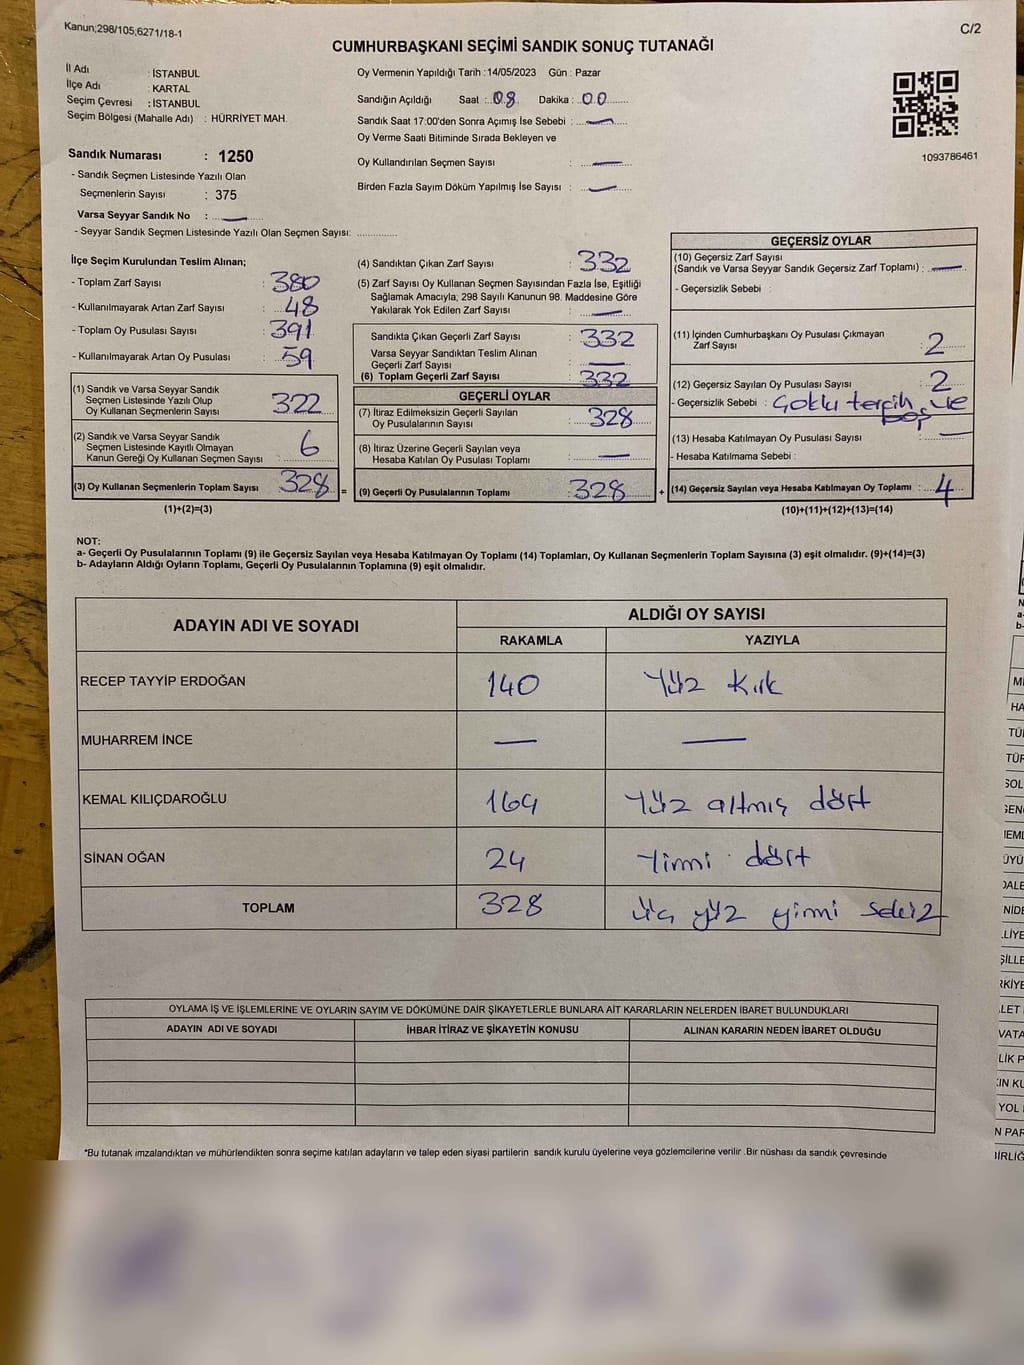 Kanun;298/105;6271/18-1
C/2
CUMHURBAŞKANI SEÇİMİ SANDIK SONUÇ TUTANAĞI
İl Adı : İSTANBUL
İlçe Adı : KARTAL
Seçim Çevresi : İSTANBUL
Seçim Bölgesi (Mahalle Adı) : HÜRRİYET MAH.
Sandık Numarası : 1250
- Sandık Seçmen Listesinde Yazılı Olan
Seçmenlerin Sayısı : 375
Varsa Seyyar Sandık No : —
- Seyyar Sandık Seçmen Listesinde Yazılı Olan Seçmen Sayısı: ..............
Oy Vermenin Yapıldığı Tarih : 14/05/2023 Gün : Pazar
Sandığın Açıldığı Saat : 08 Dakika : 00
Sandık Saat 17:00'den Sonra Açımış İse Sebebi : —
Oy Verme Saati Bitiminde Sırada Bekleyen ve
Oy Kullandırılan Seçmen Sayısı : —
Birden Fazla Sayım Döküm Yapılmış İse Sayısı : —
1093786461
İlçe Seçim Kurulundan Teslim Alınan;
- Toplam Zarf Sayısı : 380
- Kullanılmayarak Artan Zarf Sayısı : 48
- Toplam Oy Pusulası Sayısı : 391
- Kullanılmayarak Artan Oy Pusulası : 59
(1) Sandık ve Varsa Seyyar Sandık
Seçmen Listesinde Yazılı Olup
Oy Kullanan Seçmenlerin Sayısı : 322
(2) Sandık ve Varsa Seyyar Sandık
Seçmen Listesinde Kayıtlı Olmayan
Kanun Gereği Oy Kullanan Seçmen Sayısı : 6
(3) Oy Kullanan Seçmenlerin Toplam Sayısı : 328 =
(1)+(2)=(3)
(4) Sandıktan Çıkan Zarf Sayısı : 332
(5) Zarf Sayısı Oy Kullanan Seçmen Sayısından Fazla İse, Eşitliği
Sağlamak Amacıyla; 298 Sayılı Kanunun 98. Maddesine Göre
Yakılarak Yok Edilen Zarf Sayısı : —
Sandıkta Çıkan Geçerli Zarf Sayısı : 332
Varsa Seyyar Sandıktan Teslim Alınan
Geçerli Zarf Sayısı : —
(6) Toplam Geçerli Zarf Sayısı : 332
GEÇERLİ OYLAR
(7) İtiraz Edilmeksizin Geçerli Sayılan
Oy Pusulalarının Sayısı : 328
(8) İtiraz Üzerine Geçerli Sayılan ve
Hesaba Katılan Oy Pusulası Toplamı : —
(9) Geçerli Oy Pusulalarının Toplamı : 328 +
GEÇERSİZ OYLAR
(10) Geçersiz Zarf Sayısı
(Sandık ve Varsa Seyyar Sandık Geçersiz Zarf Toplamı) : —
- Geçersizlik Sebebi :
(11) İçinden Cumhurbaşkanı Oy Pusulası Çıkmayan
Zarf Sayısı : 2
(12) Geçersiz Sayılan Oy Pusulası Sayısı : 2
- Geçersizlik Sebebi : Çoklu tercih, ve
boş
(13) Hesaba Katılmayan Oy Pusulası Sayısı : —
- Hesaba Katılmama Sebebi :
(14) Geçersiz Sayılan veya Hesaba Katılmayan Oy Toplamı : 4
(10)+(11)+(12)+(13)=(14)
NOT:
a- Geçerli Oy Pusulalarının Toplamı (9) ile Geçersiz Sayılan veya Hesaba Katılmayan Oy Toplamı (14) Toplamları, Oy Kullanan Seçmenlerin Toplam Sayısına (3) eşit olmalıdır. (9)+(14)=(3)
b- Adayların Aldığı Oyların Toplamı, Geçerli Oy Pusulalarının Toplamına (9) eşit olmalıdır.
ADAYIN ADI VE SOYADI
ALDIĞI OY SAYISI
RAKAMLA YAZIYLA
RECEP TAYYİP ERDOĞAN 140 Yüz kırk
MUHARREM İNCE — —
KEMAL KILIÇDAROĞLU 164 Yüz altmış dört
SİNAN OĞAN 24 Yirmi dört
TOPLAM 328 üç yüz yirmi sekiz
OYLAMA İŞ VE İŞLEMLERİNE VE OYLARIN SAYIM VE DÖKÜMÜNE DAİR ŞİKAYETLERLE BUNLARA AİT KARARLARIN NELERDEN İBARET BULUNDUKLARI
ADAYIN ADI VE SOYADI İHBAR İTİRAZ VE ŞİKAYETİN KONUSU ALINAN KARARIN NEDEN İBARET OLDUĞU
*Bu tutanak imzalandıktan ve mühürlendikten sonra seçime katılan adayların ve talep eden siyasi partilerin sandık kurulu üyelerine veya gözlemcilerine verilir .Bir nüshası da sandık çevresinde